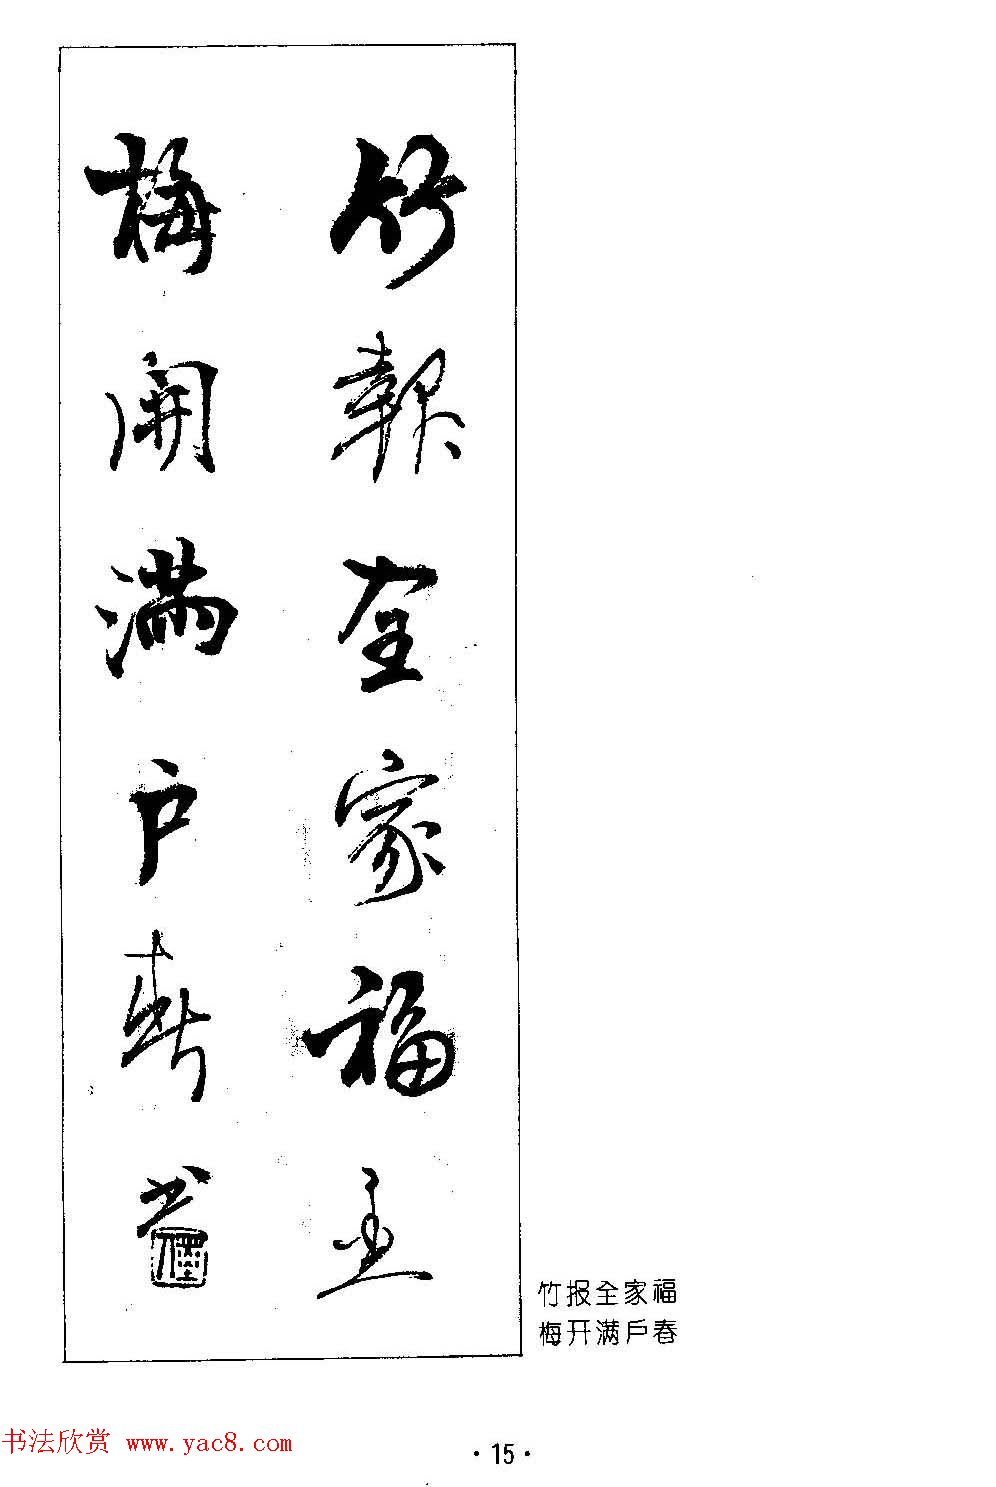 竹報全家福
梅開滿户春
书
竹报全家福
梅开满户春
书法欣赏 www.yac8.com
·15·